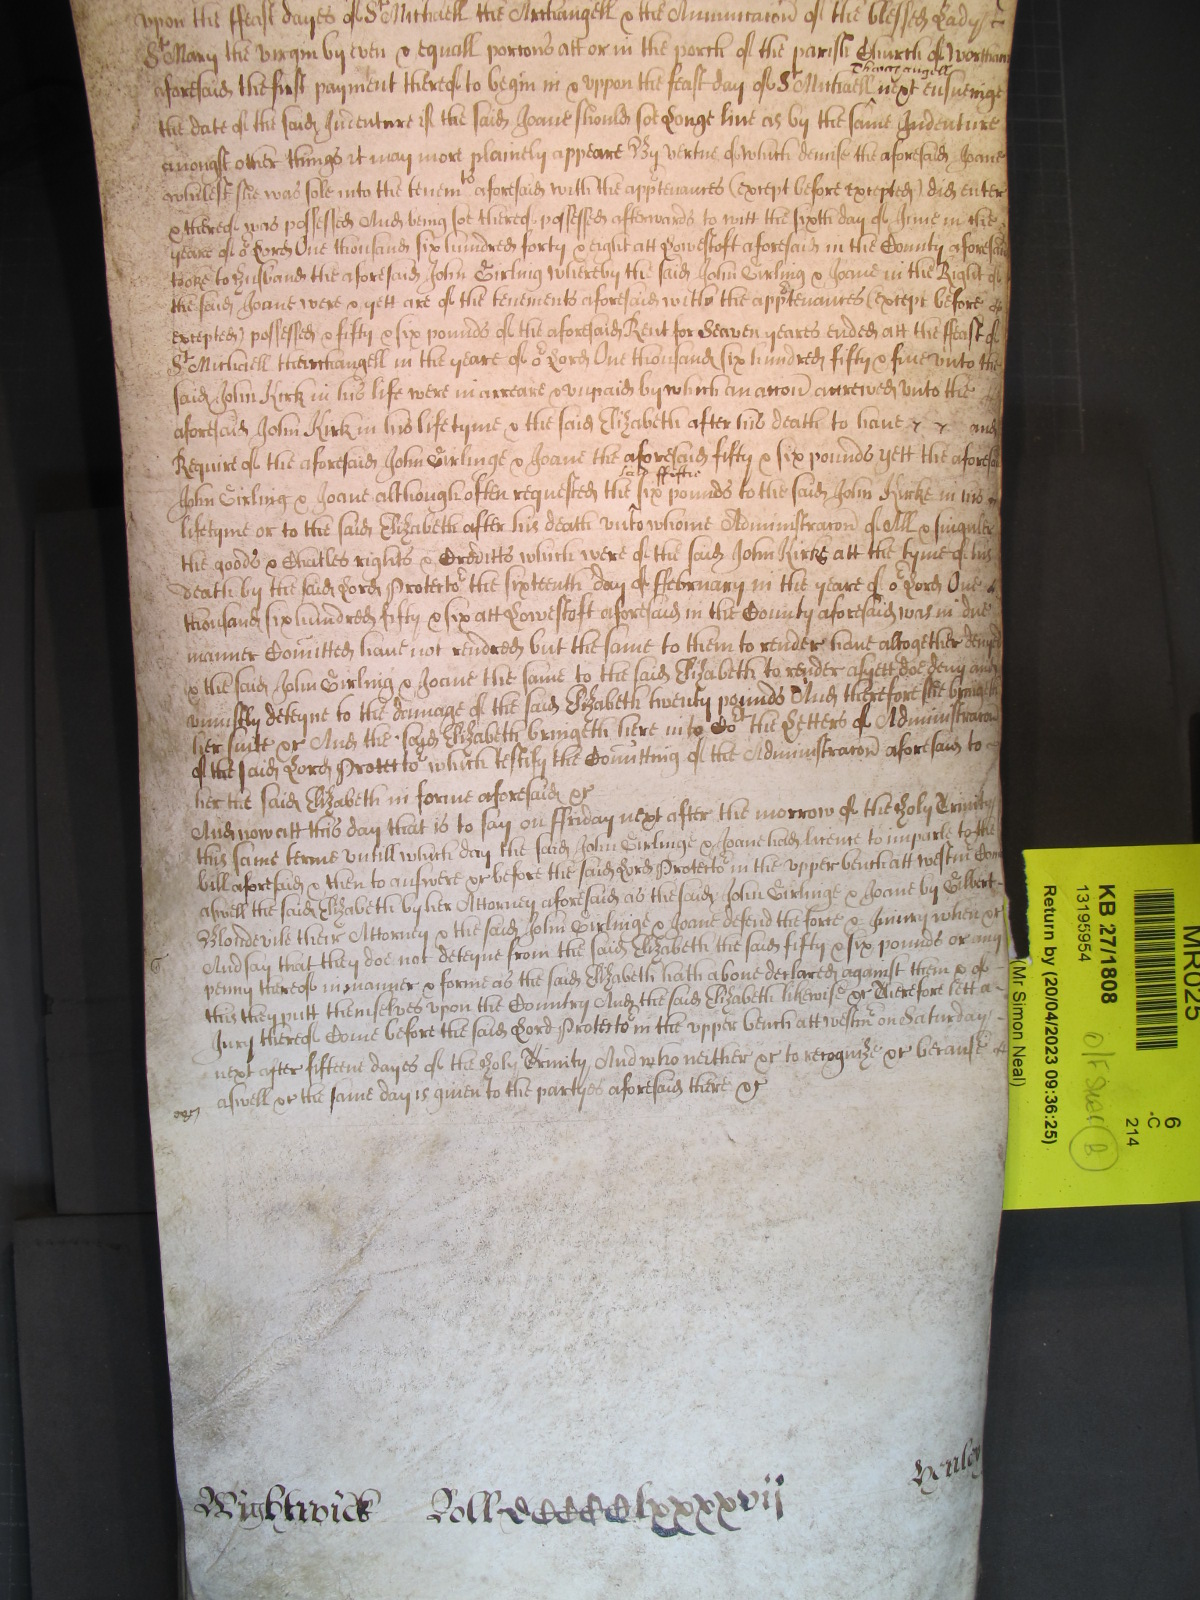 vpon the ffeast dayes of St Michaell the Archangell & the Annunciacon of the blessed Lady
St Mary the virgin by even & equall porcons att or in the porch of the parish Church of Wortham
aforesaid the first payment thereof to begin in & vppon the feast day of St Michaell tharchangell next ensueinge
the date of the said Indenture if the said Joane should soe Longe live as by the same Indenture
amongst other things it may more plainely appeare By vertue of which demise the aforesaid Joane
whilest she was sole into the tenemts aforesaid with the apptenances (except before excepted) did enter
& thereof was possessed And being soe thereof possessed afterwards to witt the sixth day of June in the
yeare of or Lord One thousand six hundred forty & eight att Lowestoft aforesaid in the County aforesaid
tooke to husband the aforesaid John Girling whereby the said John Girling & Joane in the Right of
the said Joane were & yett are of the tenements aforesaid with the apptenances (except before
excepted) possessed & fifty & six pounds of the aforesaid Rent for Seaven yeares ended att the ffeast of
St Michaell tharchangell in the yeare of or Lord One thousand six hundred fifty & five vnto the
said John Kirk in his life were in arreare & vnpaid by which an accon accrewed vnto the
aforesaid John Kirk in his lifetyme & the said Elizabeth after his death to have and
Require of the aforesaid John Girlinge & Joane the aforesaid fifty & six pounds yett the aforesaid
John Girling & Joane although often requested the said ffiftie six pounds to the said John Kirke in his
lifetyme or to the said Elizabeth after his death vnto whome Administracon of All & singuler
the goods & Chatles rights & Credditts which were of the said John Kirke att the tyme of his
death by the said Lord Protector the sixteenth day of ffebruary in the yeare of or Lord One
thousand six hundred fifty & six att Lowestoft aforesaid in the County aforesaid was in due
manner Comitted have not rendred but the same to them to render have altogether denyed
& the said John Girling & Joane the same to the said Elizabeth to render as yett doe deny and
vniustly deteyne to the damage of the said Elizabeth twenty pounds And therefore she bringeth
her suite &c And the said Elizabeth bringeth here into Cort the Letters of Administracon
of the said Lord Protector which testify the Comitting of the Administracon aforesaid to
her the said Elizabeth in forme aforesaid &c
And now att this day that is to say on ffriday next after the morrow of the Holy Trinity
this same terme vntill which day the said John Girlinge & Joane had licence to imparle to the
bill aforesaid & then to answere &c before the said Lord Protector in the vpper bench att westmr Come
aswell the said Elizabeth by her Attorney aforesaid as the said John Girlinge & Joane by Gilbert
Blondevile their Attorney & the said John Girlinge & Joane defend the force & Iniury when &c
And say that they doe not deteyne from the said Elizabeth the said fifty & six pounds or any
penny thereof in manner & forme as the said Elizabeth hath above declared against them & of
this they putt themselves vpon the Country And the said Elizabeth likewise &c Therefore lett a
Jury thereof Come before the said Lord Protector in the vpper bench att westmr on Saturday
next after fifteene dayes of the Holy Trinity And who neither &c to recognize &c because
aswell &c the same day is given to the partyes aforesaid there &c
Wightwick Roll dCCCClxxxxvij Henley
MR025
6
-C
214
KB 27/1808
13195954
Return by (20/04/2023 09:36:25)
(Mr Simon Neal)